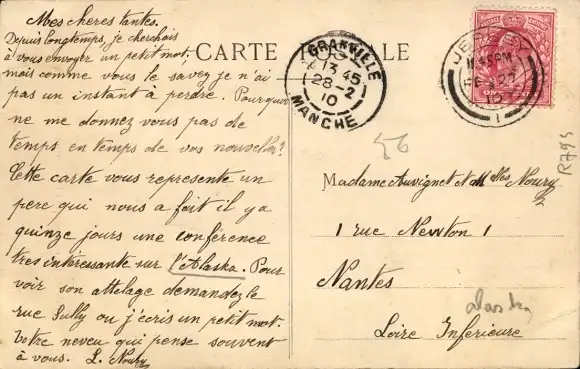 Mes chères tantes.
Depuis longtemps, je cherchois
à vous envoyer un petit mot,
mais comme vous le savez je n'ai
pas un instant à perdre. Pourquoi
ne me donnez vous pas de
temps en temps de vos nouvelles?
Cette carte vous represente un
pere qui nous a fait il y a
quinze jours une conférence
tres interessante sur l'Alaska. Pour
voir son attelage demandez le
rue Sully ou j'ecris un petit mot.
Votre neveu qui pense souvent
à vous. L. Noury
CARTE POSTALE
GRANVILLE
13 45
28-2
10
MANCHE
JERSEY
45PM
FE 27
10
1
Madame Auvignet et Melles Noury
1 rue Newton 1
Nantes
Loire Inferieure
Alaska
R793